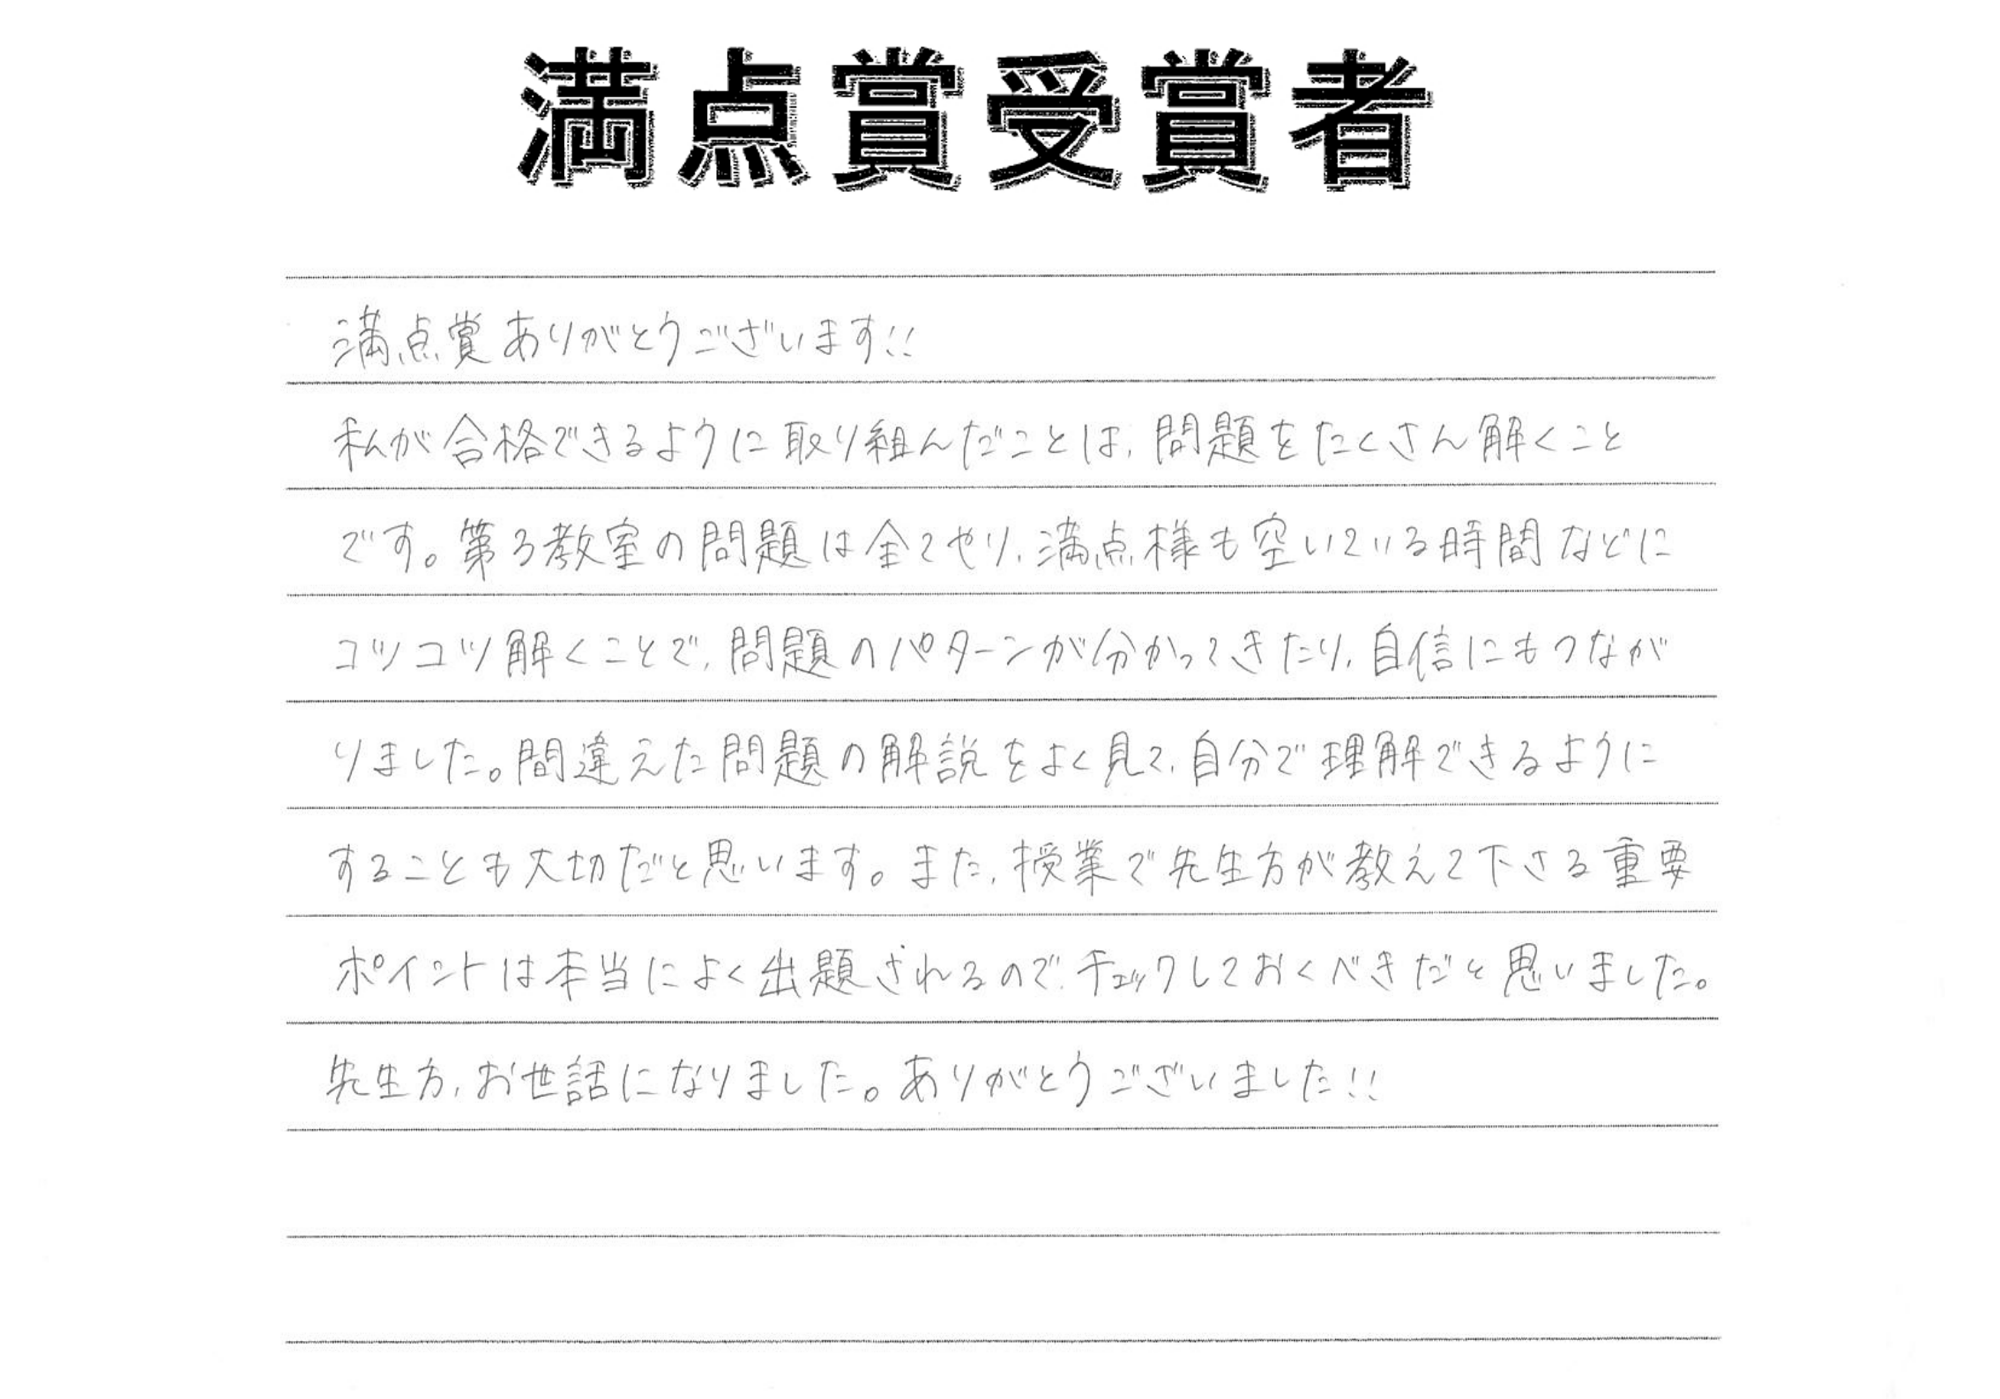 満点賞受賞者
満点賞ありがとうございます!!
私が合格できるように取り組んだことは、問題をたくさん解くこと
です。第3教室の問題は全てやり、満点様も空いている時間などに
コツコツ解くことで、問題のパターンが分かってきたり、自信にもつなが
りました。間違えた問題の解説をよく見て、自分で理解できるように
することも大切だと思います。また、授業で先生方が教えて下さる重要
ポイントは本当によく出題されるので、チェックしておくべきだと思いました。
先生方、お世話になりました。ありがとうございました!!